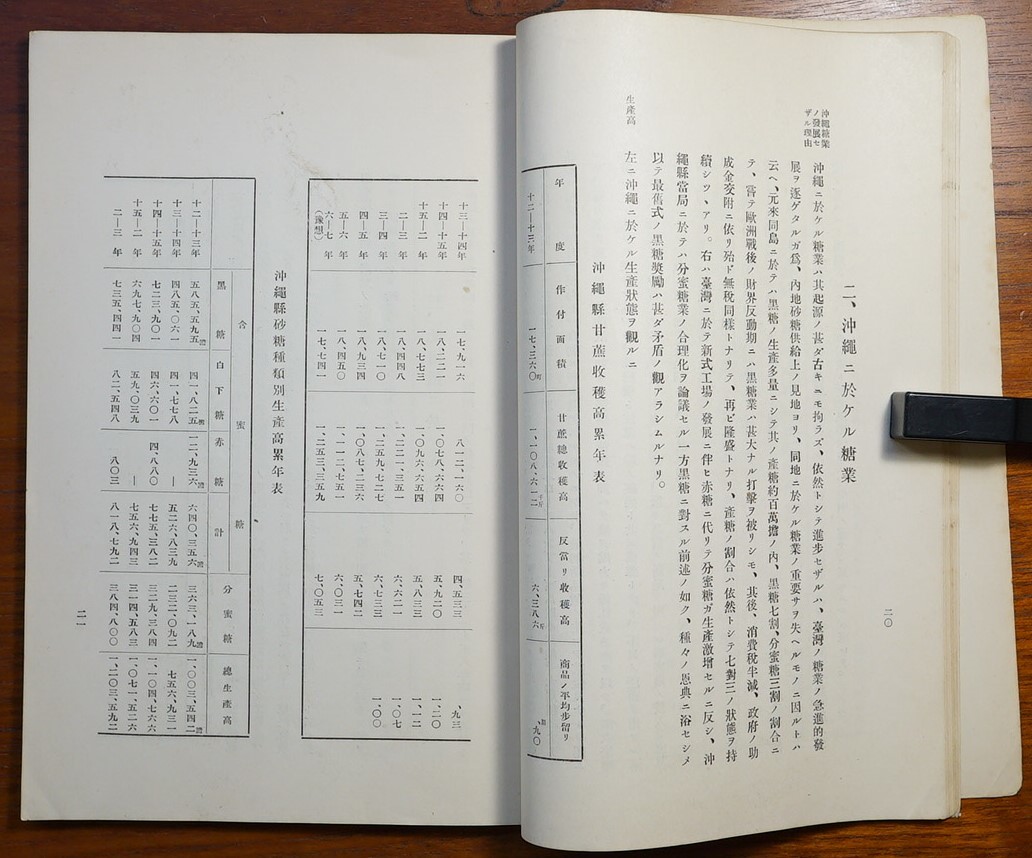 二〇
二、沖繩ニ於ケル糖業
沖繩糖業
ノ發展セ
ザル理由
沖繩ニ於ケル糖業ハ其起源ノ甚ダ古キニモ拘ラズ、依然トシテ進步セザルハ、臺灣ノ糖業ノ急進的發
展ヲ逐ゲタルガ爲、內地砂糖供給上ノ見地ヨリ、同地ニ於ケル糖業ノ重要サヲ失ヘルモノニ因ルトハ
云ヘ、元來同島ニ於テハ黑糖ノ生產多量ニシテ其ノ產糖約百萬擔ノ內、黑糖七割、分蜜糖三割ノ割合ニ
テ、嘗テ歐洲戰後ノ財界反動期ニハ黑糖業ハ甚大ナル打擊ヲ被リシモ、其後、消費稅半減、政府ノ助
成金交附ニ依リ殆ド無稅同樣トナリテ、再ビ隆盛トナリ、產糖ノ割合ハ依然トシテ七對三ノ狀態ヲ持
續シツヽアリ。右ハ臺灣ニ於テ新式工場ノ發展ニ伴ヒ赤糖ニ代リテ分蜜糖ガ生產激增セルニ反シ、沖
繩縣當局ニ於テハ分蜜糖業ノ合理化ヲ論議セル一方黑糖ニ對スル前述ノ如ク、種々ノ恩典ニ浴セシメ
以テ最舊式ノ黑糖奬勵ハ甚ダ矛盾ノ觀アラシムルナリ。
生產高
左ニ沖繩ニ於ケル生產狀態ヲ觀ルニ
沖繩縣甘蔗收穫高累年表
年度 作付面積 甘蔗總收穫高 反當リ收穫高 商品ノ平均步留リ
十二—十三年 一七、三六〇町 一、一〇八、六一二千斤 六、三八六斤 、九〇
十三—十四年 一七、九一六 八一二、一六〇 四、五三三 、九三
十四—十五年 一八、二二一 一、〇七八、六六四 五、九二〇 一、二〇
十五—二年 一八、七七三 一、〇九六、六五四 五、八三三 一、一二
二—三年 一八、四四八 一、二二一、三五一 六、六二一 一、〇七
三—四年 一八、七一〇 一、二五九、七二七 六、七三三 一、〇〇
四—五年 一八、九三四 一、〇八七、二三六 五、七四二
五—六年 一八、四五〇 一、一一二、七五一 六、〇三一
六—七年(豫想) 一七、七四一 一、二五三、三五九 七、〇五三
沖繩縣砂糖種類別生產高累年表
含蜜糖
黑糖 白下糖 赤糖 計 分蜜糖 總生產高
十二—十三年 五八五、五九五擔 四一、八二五擔 一二、九三六擔 六四〇、三五六擔 三六三、一八九擔 一、〇〇三、五四二擔
十三—十四年 四八五、〇六一 四一、七七八 — 五二六、八三九 二三二、〇九二 七五六、九三一
十四—十五年 七二三、九〇一 四六、六〇一 四、八八〇 七七五、三八二 三二九、三八四 一、一〇四、七六六
十五—二年 六九七、九〇四 五九、〇三九 — 七五六、九四三 三一四、五八三 一、〇七一、五二六
二—三年 七三五、四四一 八二、五四八 八〇三 八一八、七九二 三八四、八〇〇 一、二〇三、五九二
二一